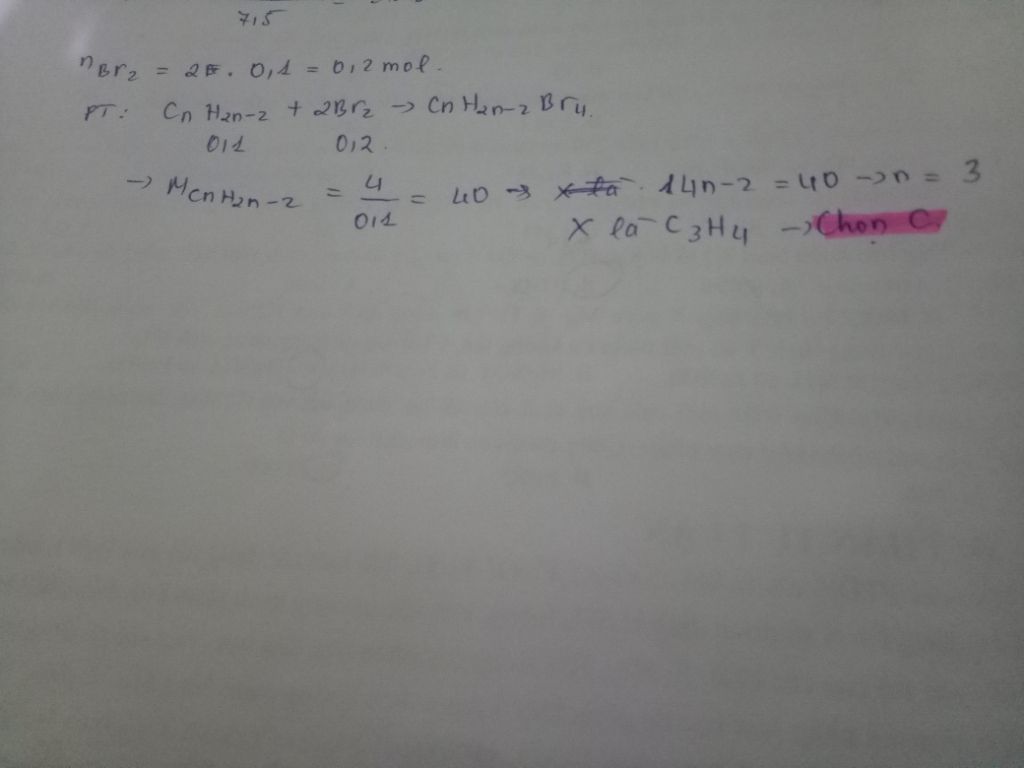 7,5
nBr2 = 2. 0,1 = 0,2 mol.
PT: CnH2n-2 + 2Br2 → CnH2n-2Br4.
0,1 0,2.
→ MCnH2n-2 = 4/0,1 = 40 → x là 14n-2 = 40 → n = 3
X là C3H4 → Chọn C.